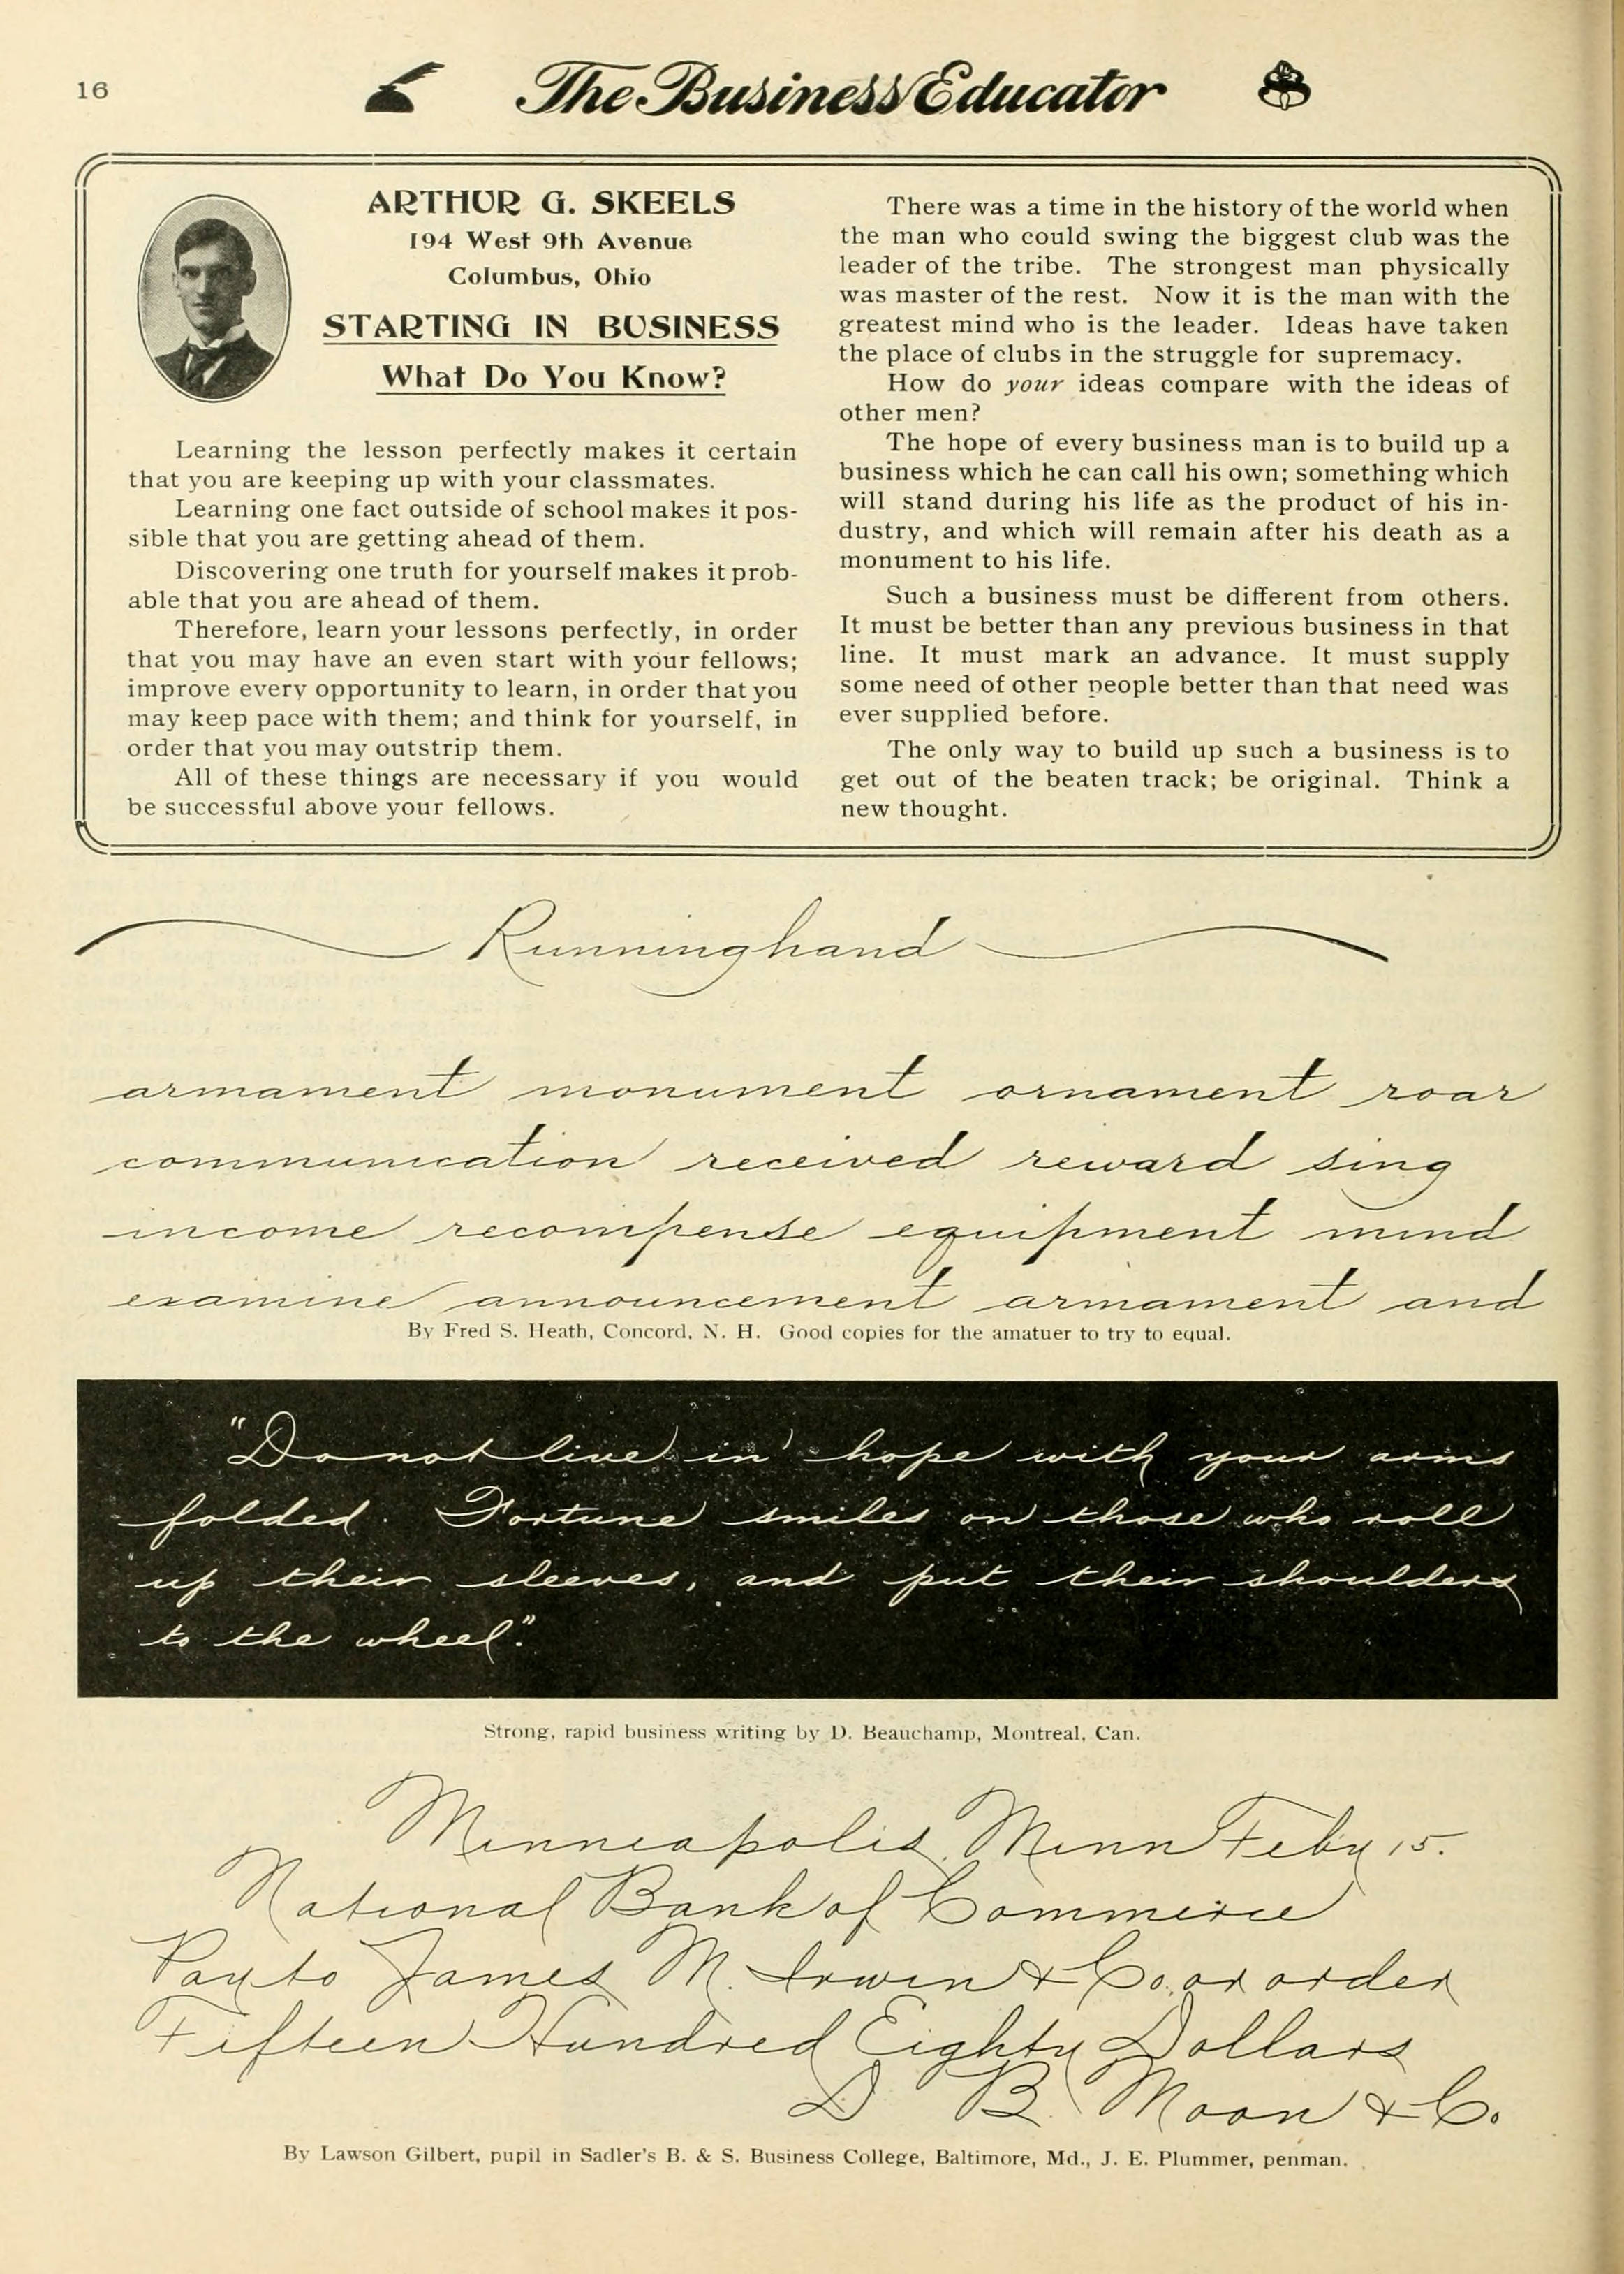 16
The Business Educator
ARTHUR G. SKEELS
194 West 9th Avenue
Columbus, Ohio
STARTING IN BUSINESS
What Do You Know?
Learning the lesson perfectly makes it certain
that you are keeping up with your classmates.
Learning one fact outside of school makes it pos-
sible that you are getting ahead of them.
Discovering one truth for yourself makes it prob-
able that you are ahead of them.
Therefore, learn your lessons perfectly, in order
that you may have an even start with your fellows;
improve every opportunity to learn, in order that you
may keep pace with them; and think for yourself, in
order that you may outstrip them.
All of these things are necessary if you would
be successful above your fellows.
There was a time in the history of the world when
the man who could swing the biggest club was the
leader of the tribe. The strongest man physically
was master of the rest. Now it is the man with the
greatest mind who is the leader. Ideas have taken
the place of clubs in the struggle for supremacy.
How do your ideas compare with the ideas of
other men?
The hope of every business man is to build up a
business which he can call his own; something which
will stand during his life as the product of his in-
dustry, and which will remain after his death as a
monument to his life.
Such a business must be different from others.
It must be better than any previous business in that
line. It must mark an advance. It must supply
some need of other people better than that need was
ever supplied before.
The only way to build up such a business is to
get out of the beaten track; be original. Think a
new thought.
Runninghand
armament monument ornament roar
communication received reward sing
income recompense equipment mind
examine announcement armament and
By Fred S. Heath, Concord, N. H. Good copies for the amatuer to try to equal.
"Do not live in hope with your arms
folded. Fortune smiles on those who roll
up their sleeves, and put their shoulders
to the wheel."
Strong, rapid business writing by D. Beauchamp, Montreal, Can.
Minneapolis, Minn Feby 15.
National Bank of Commerce
Pay to James M. Irwin & Co. or order
Fifteen Hundred Eighty Dollars
D B Moon & Co.
By Lawson Gilbert, pupil in Sadler's B. & S. Business College, Baltimore, Md., J. E. Plummer, penman.